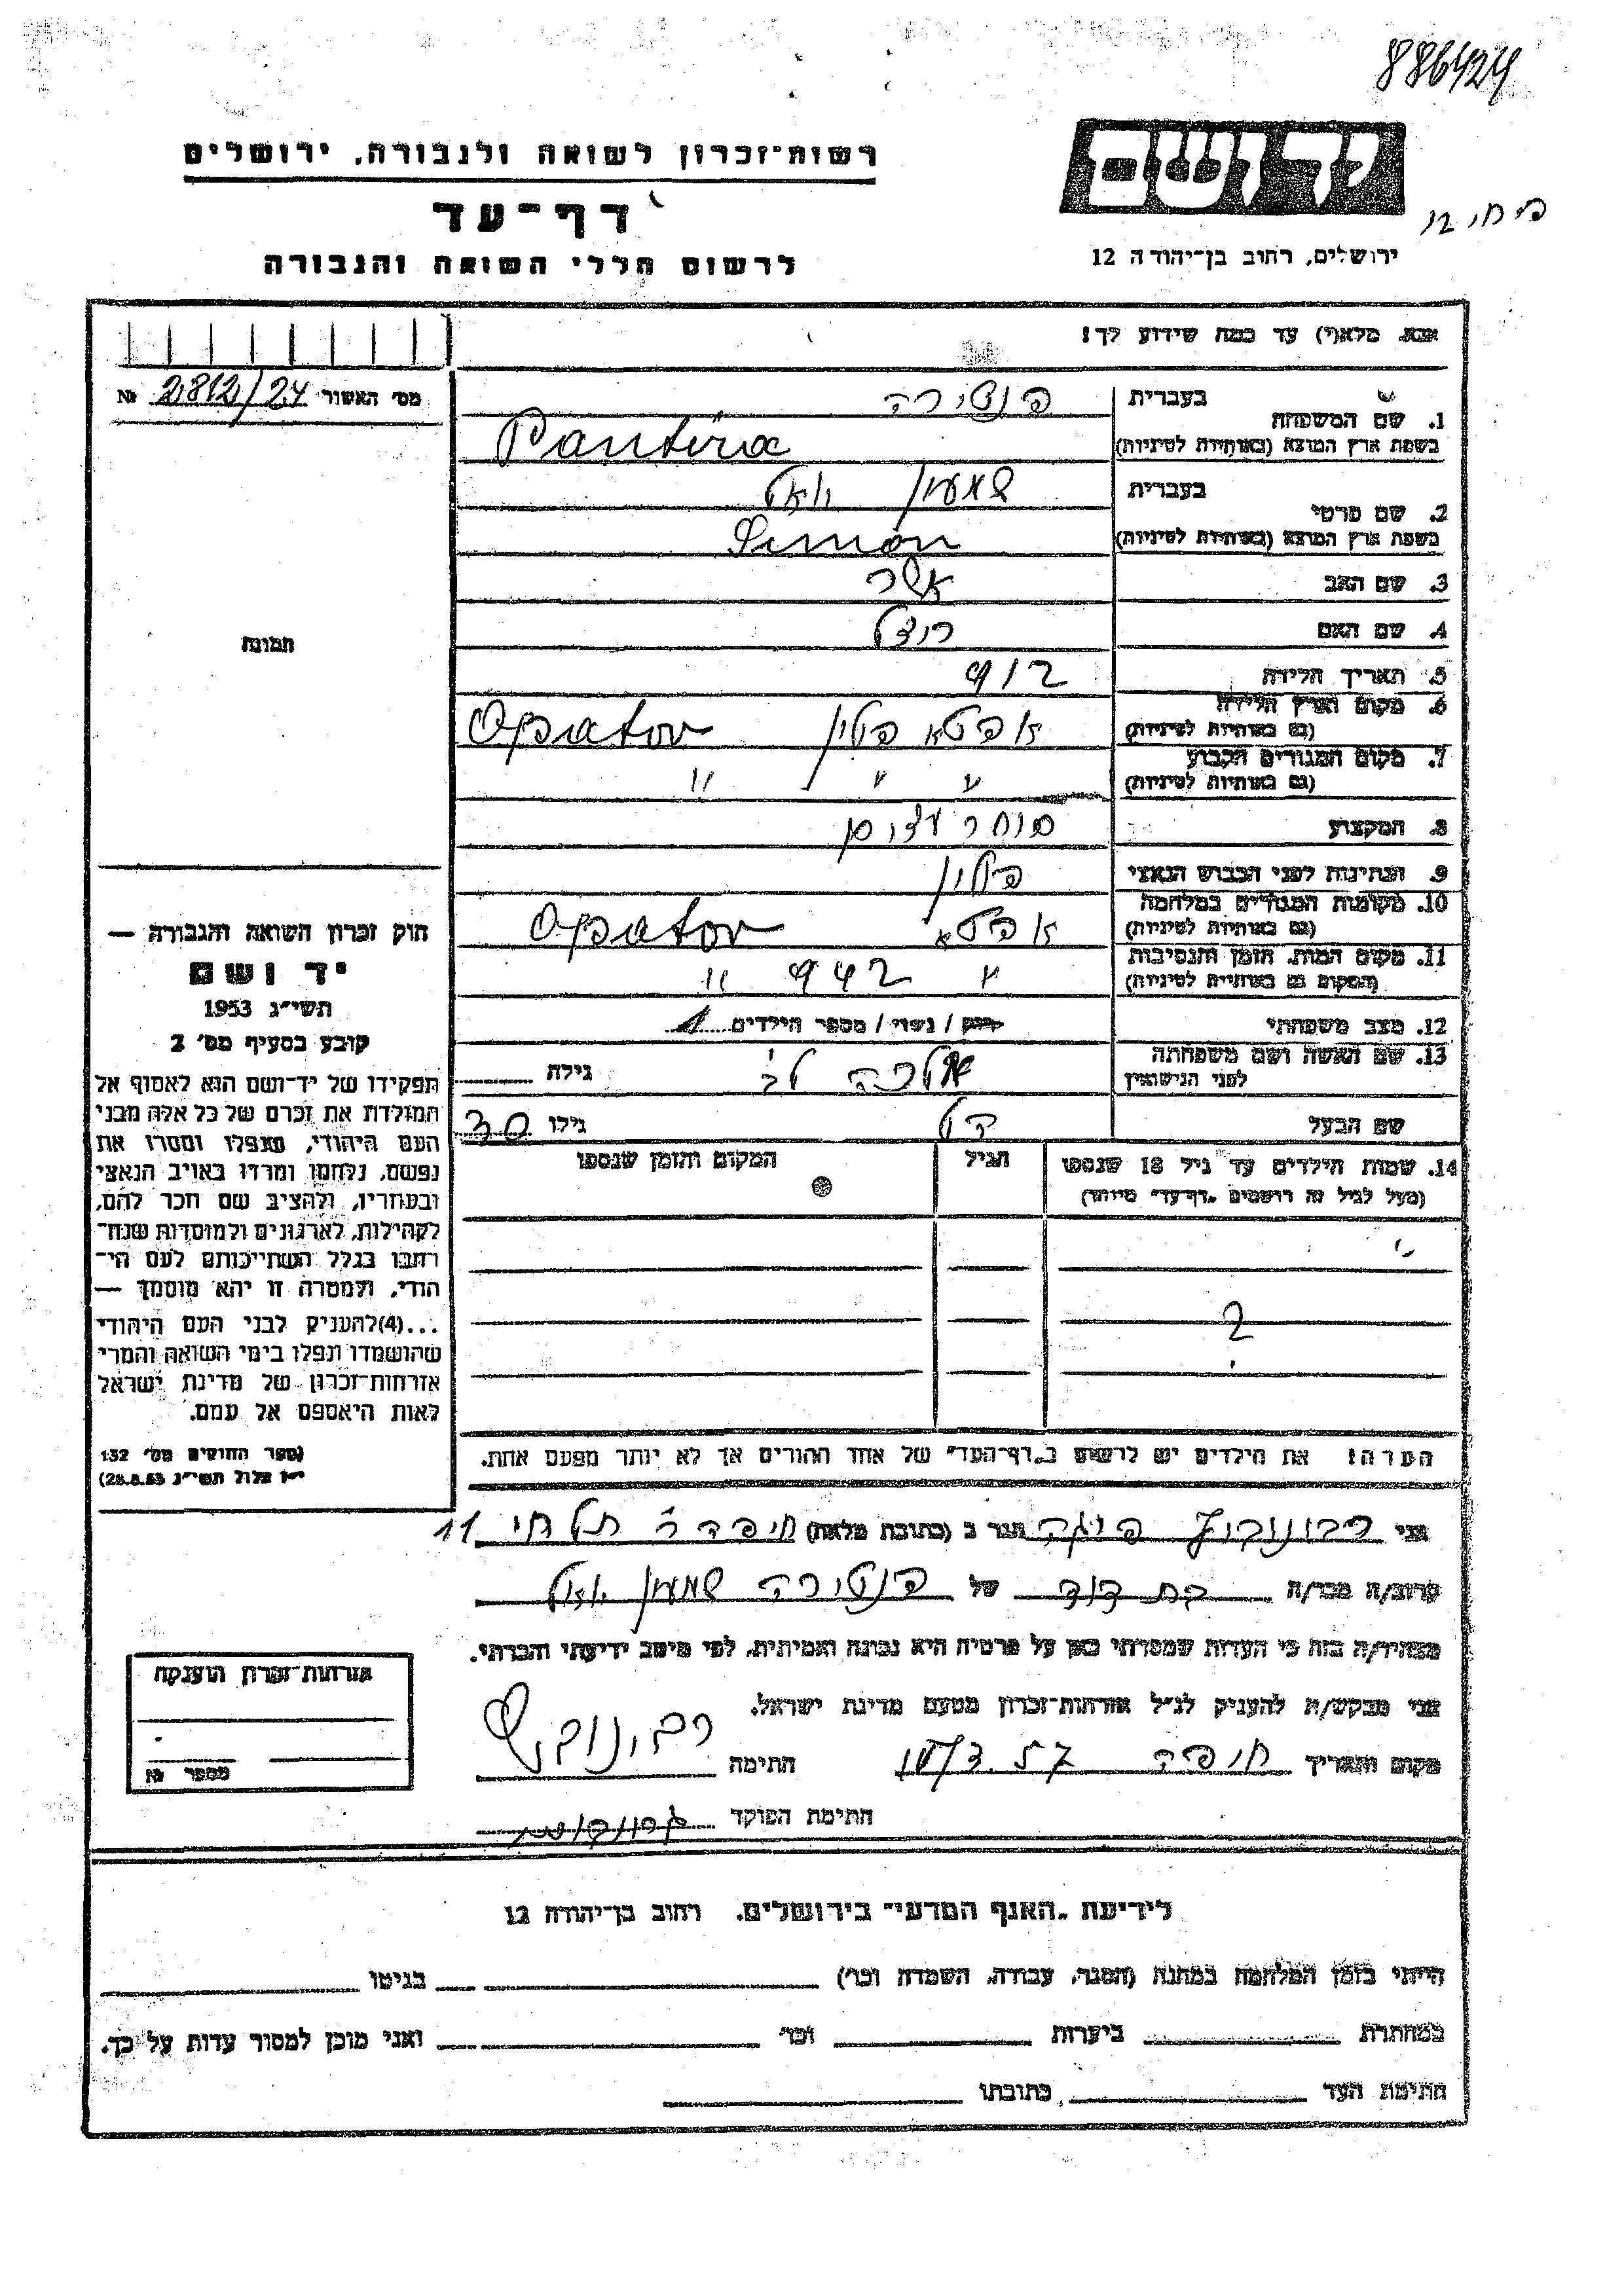 886424
רשות־זכרון לשואה ולגבורה, ירושלים
יד ושם
דף־עד
לרשום חללי השואה והגבורה
ירושלים, רחוב בן־יהודה 12
אנא, מלא(י) עד כמה שידוע לך!
מס' האשור 2812/24 №
1. שם המשפחה
בעברית פנטירה
בשפת ארץ המוצא (באותיות לטיניות) Pantira
2. שם פרטי
בעברית שמעון יואל
בשפת ארץ המוצא (באותיות לטיניות) Simon
3. שם האב אשר
4. שם האם
5. תאריך הלידה 912
6. מקום וארץ הלידה
(גם באותיות לטיניות) אפטא פולין Opatov
7. מקום המגורים הקבוע
(גם באותיות לטיניות) " " "
8. המקצוע סוחר עצים
9. הנתינות לפני הכבוש הנאצי פולין
10. מקומות המגורים במלחמה
(גם באותיות לטיניות) אפטא Opatov
11. מקום המות, הזמן והנסיבות
(המקום גם באותיות לטיניות) " 942 "
12. מצב משפחתי רווק / נשוי / מספר הילדים 1
13. שם האשה ושם משפחתה
לפני הנישואין
גילה
שם הבעל
גילו 30
14. שמות הילדים עד גיל 18 שנספו
(מעל לגיל זה רושמים "דף־עד" מיוחד)
הגיל
המקום והזמן שנספו
?
הערה! את הילדים יש לרשום ב"דף־העד" של אחד ההורים אך לא יותר מפעם אחת.
תמונה
חוק זכרון השואה והגבורה —
יד ושם
תשי"ג 1953
קובע בסעיף מס' 2
תפקידו של יד־ושם הוא לאסוף אל
המולדת את זכרם של כל אלה מבני
העם היהודי, שנפלו ומסרו את
נפשם, נלחמו ומרדו באויב הנאצי
ובעוזריו, ולהציב שם וזכר להם,
לקהילות, לארגונים ולמוסדות שנח־
רבו בגלל השתייכותם לעם הי־
הודי, ולמטרה זו יהא מוסמך —
...(4)להעניק לבני העם היהודי
שהושמדו ונפלו בימי השואה והמרי
אזרחות־זכרון של מדינת ישראל
לאות היאספם אל עמם.
(ספר החוקים מס' 132
י"ז אלול תשי"ג 28.8.53)
אני רבינוביץ הגר ב (כתובת מלאה) חיפה תל חי 11
קרוב/ה מכר/ה בת דוד של פנטירה שמעון יואל
מצהיר/ה בזה כי העדות שמסרתי כאן על פרטיה היא נכונה ואמיתית, לפי מיטב ידיעתי והכרתי.
אני מבקש/ת להעניק לנ"ל אזרחות־זכרון מטעם מדינת ישראל.
מקום ותאריך חיפה
חתימה רבינוביץ
חתימת הפוקד
אזרחות־זכרון הוענקה
מספר №
לידיעת "האגף המדעי" בירושלים, רחוב בן־יהודה 12
הייתי בזמן המלחמה במחנה (הסגר, עבודה, השמדה וכו') בגיטו
במחתרת ביערות וכו' ואני מוכן למסור עדות על כך.
חתימת העד כתובתו